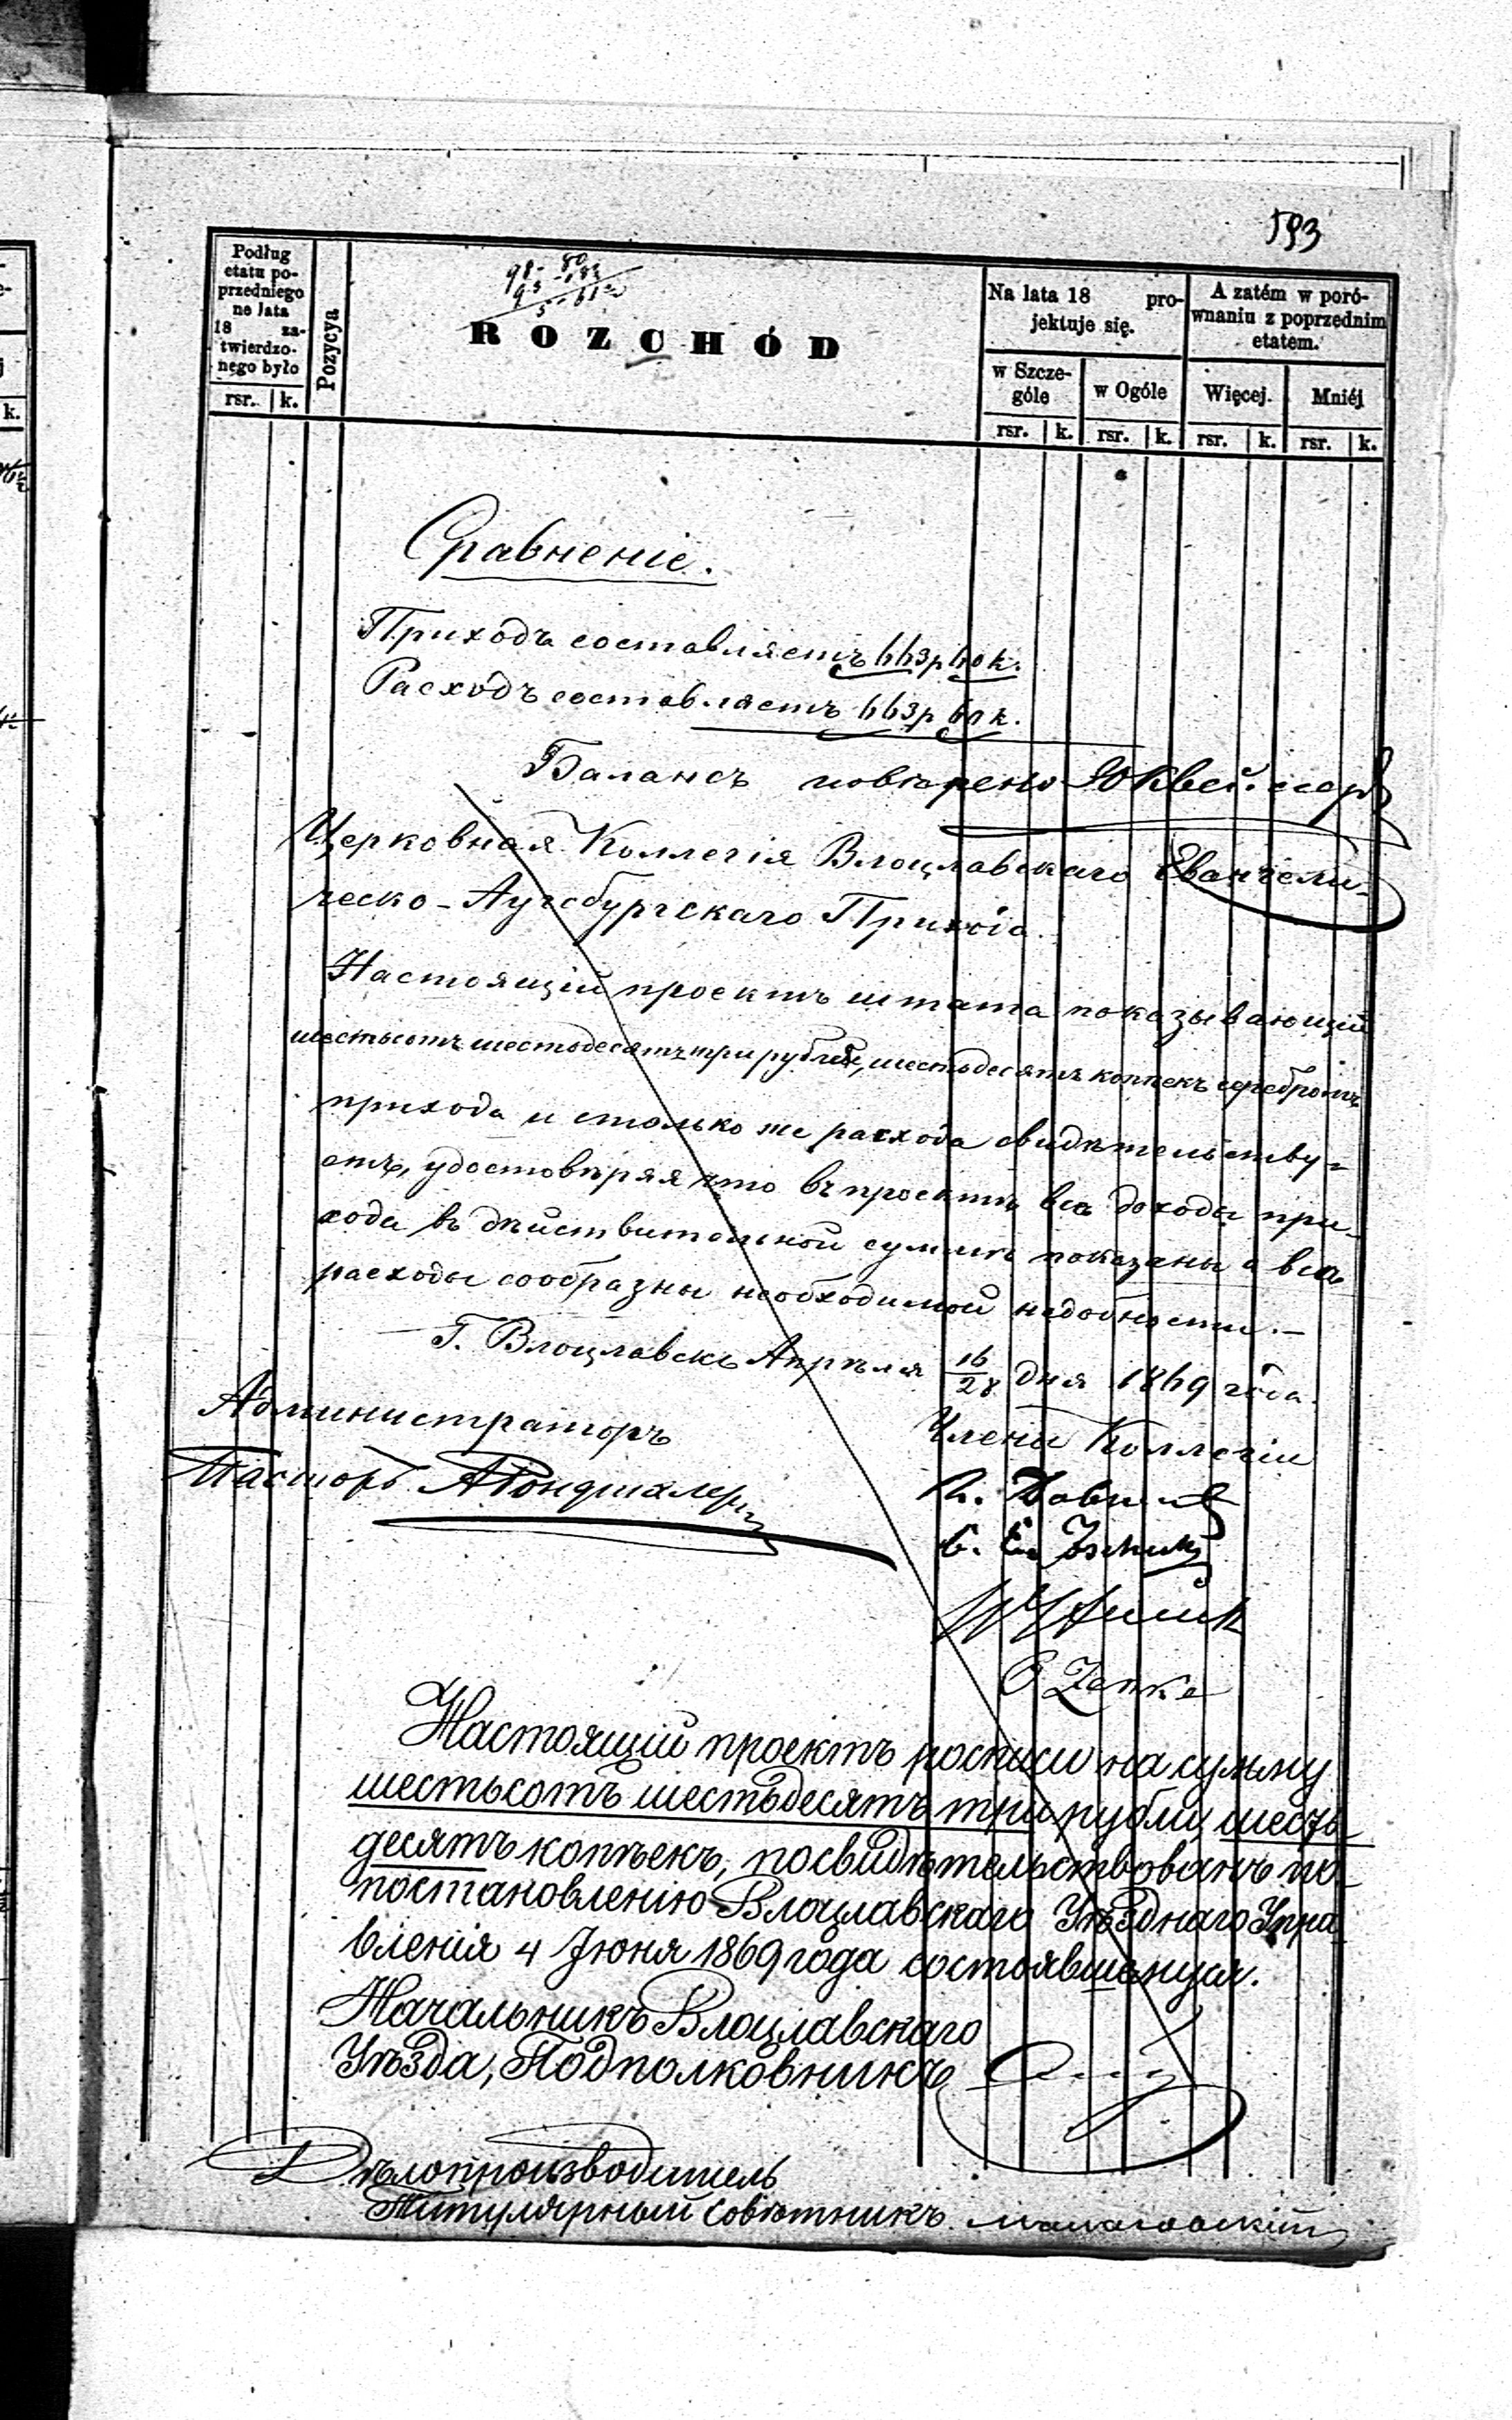 593
Podług
etatu po-
przedniego
na lata
18 za-
twierdzo-
nego było
rsr. k.
Pozycya
ROZCHÓD
Na lata 18 pro-
jektuje się.
w Szcze-
góle
w Ogóle
rsr. k. rsr. k.
A zatém w poró-
wnaniu z poprzednim
etatem.
Więcej. Mniéj
rsr. k. rsr. k.
Сравненіе.
Приходъ составляетъ 663 р 60 к.
Расходъ составляетъ 663 р 60 к.
Балансъ
Церковная Коллегія Влоцлавскаго Евангели-
ческо-Аугсбургскаго Прихода.
Настоящій проектъ штата показывающій
шестьсотъ шестьдесятъ три рубля, шестьдесятъ копѣекъ серебромъ
прихода и столько же расхода свидѣтельству-
етъ, удостовѣряя что въ проектѣ все доходы при-
хода въ дѣйствительной суммѣ показаны а все
расходы сообразны необходимой надобности.—
Г. Влоцлавскъ Апрѣля 16/28 дня 1869 года.
Администраторъ
Члены Коллегіи
Пасторъ
Настоящій проектъ росписи на сумму
шестьсотъ шестьдесятъ три рубли, шесть-
десятъ копѣекъ, посвидѣтельствованъ по
постановленію Влоцлавскаго Уѣзднаго Упра
вленія 4 Іюня 1869 года состоявшемуся.
Начальникъ Влоцлавскаго
Уѣзда, Подполковникъ
Дѣлопроизводитель
Титулярный Совѣтникъ